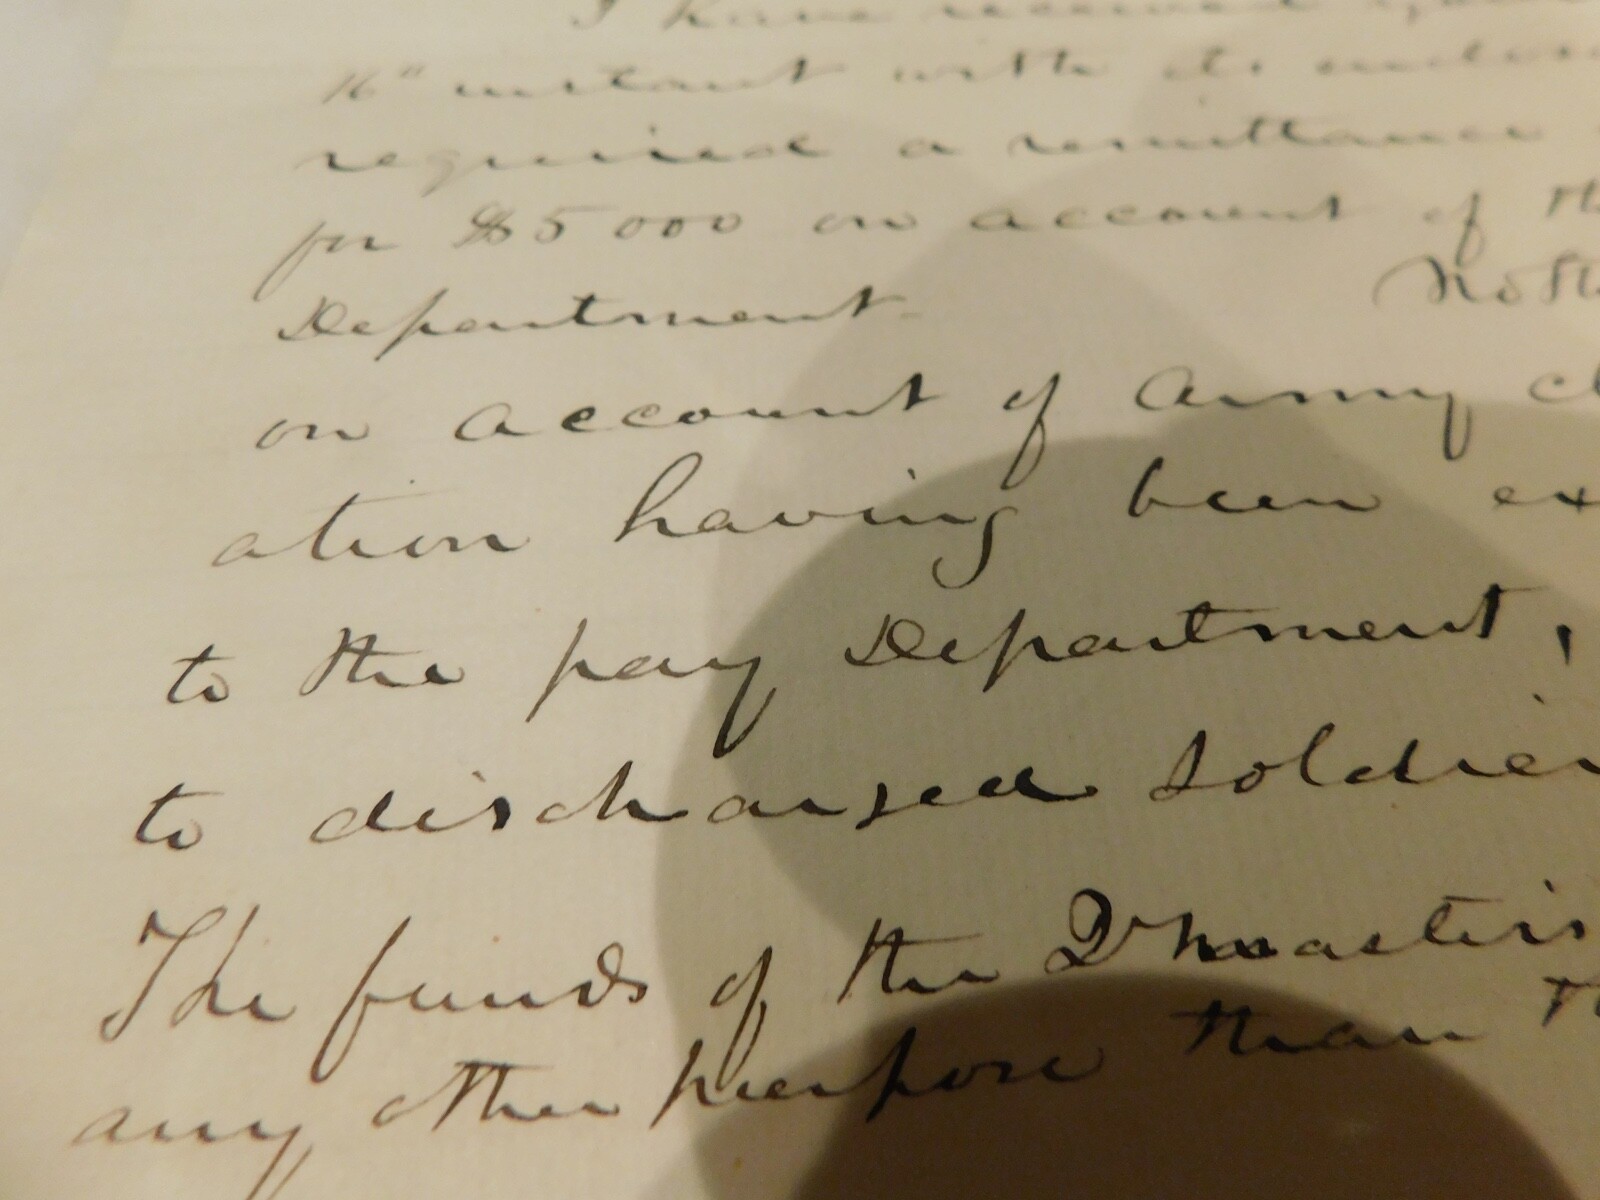 I have received
16" instant with its
required a remittance
for $5000 on account of
Department.
on account of Army
ation having been
to the pay Department,
to discharged soldier
The funds of the
any other purpose than